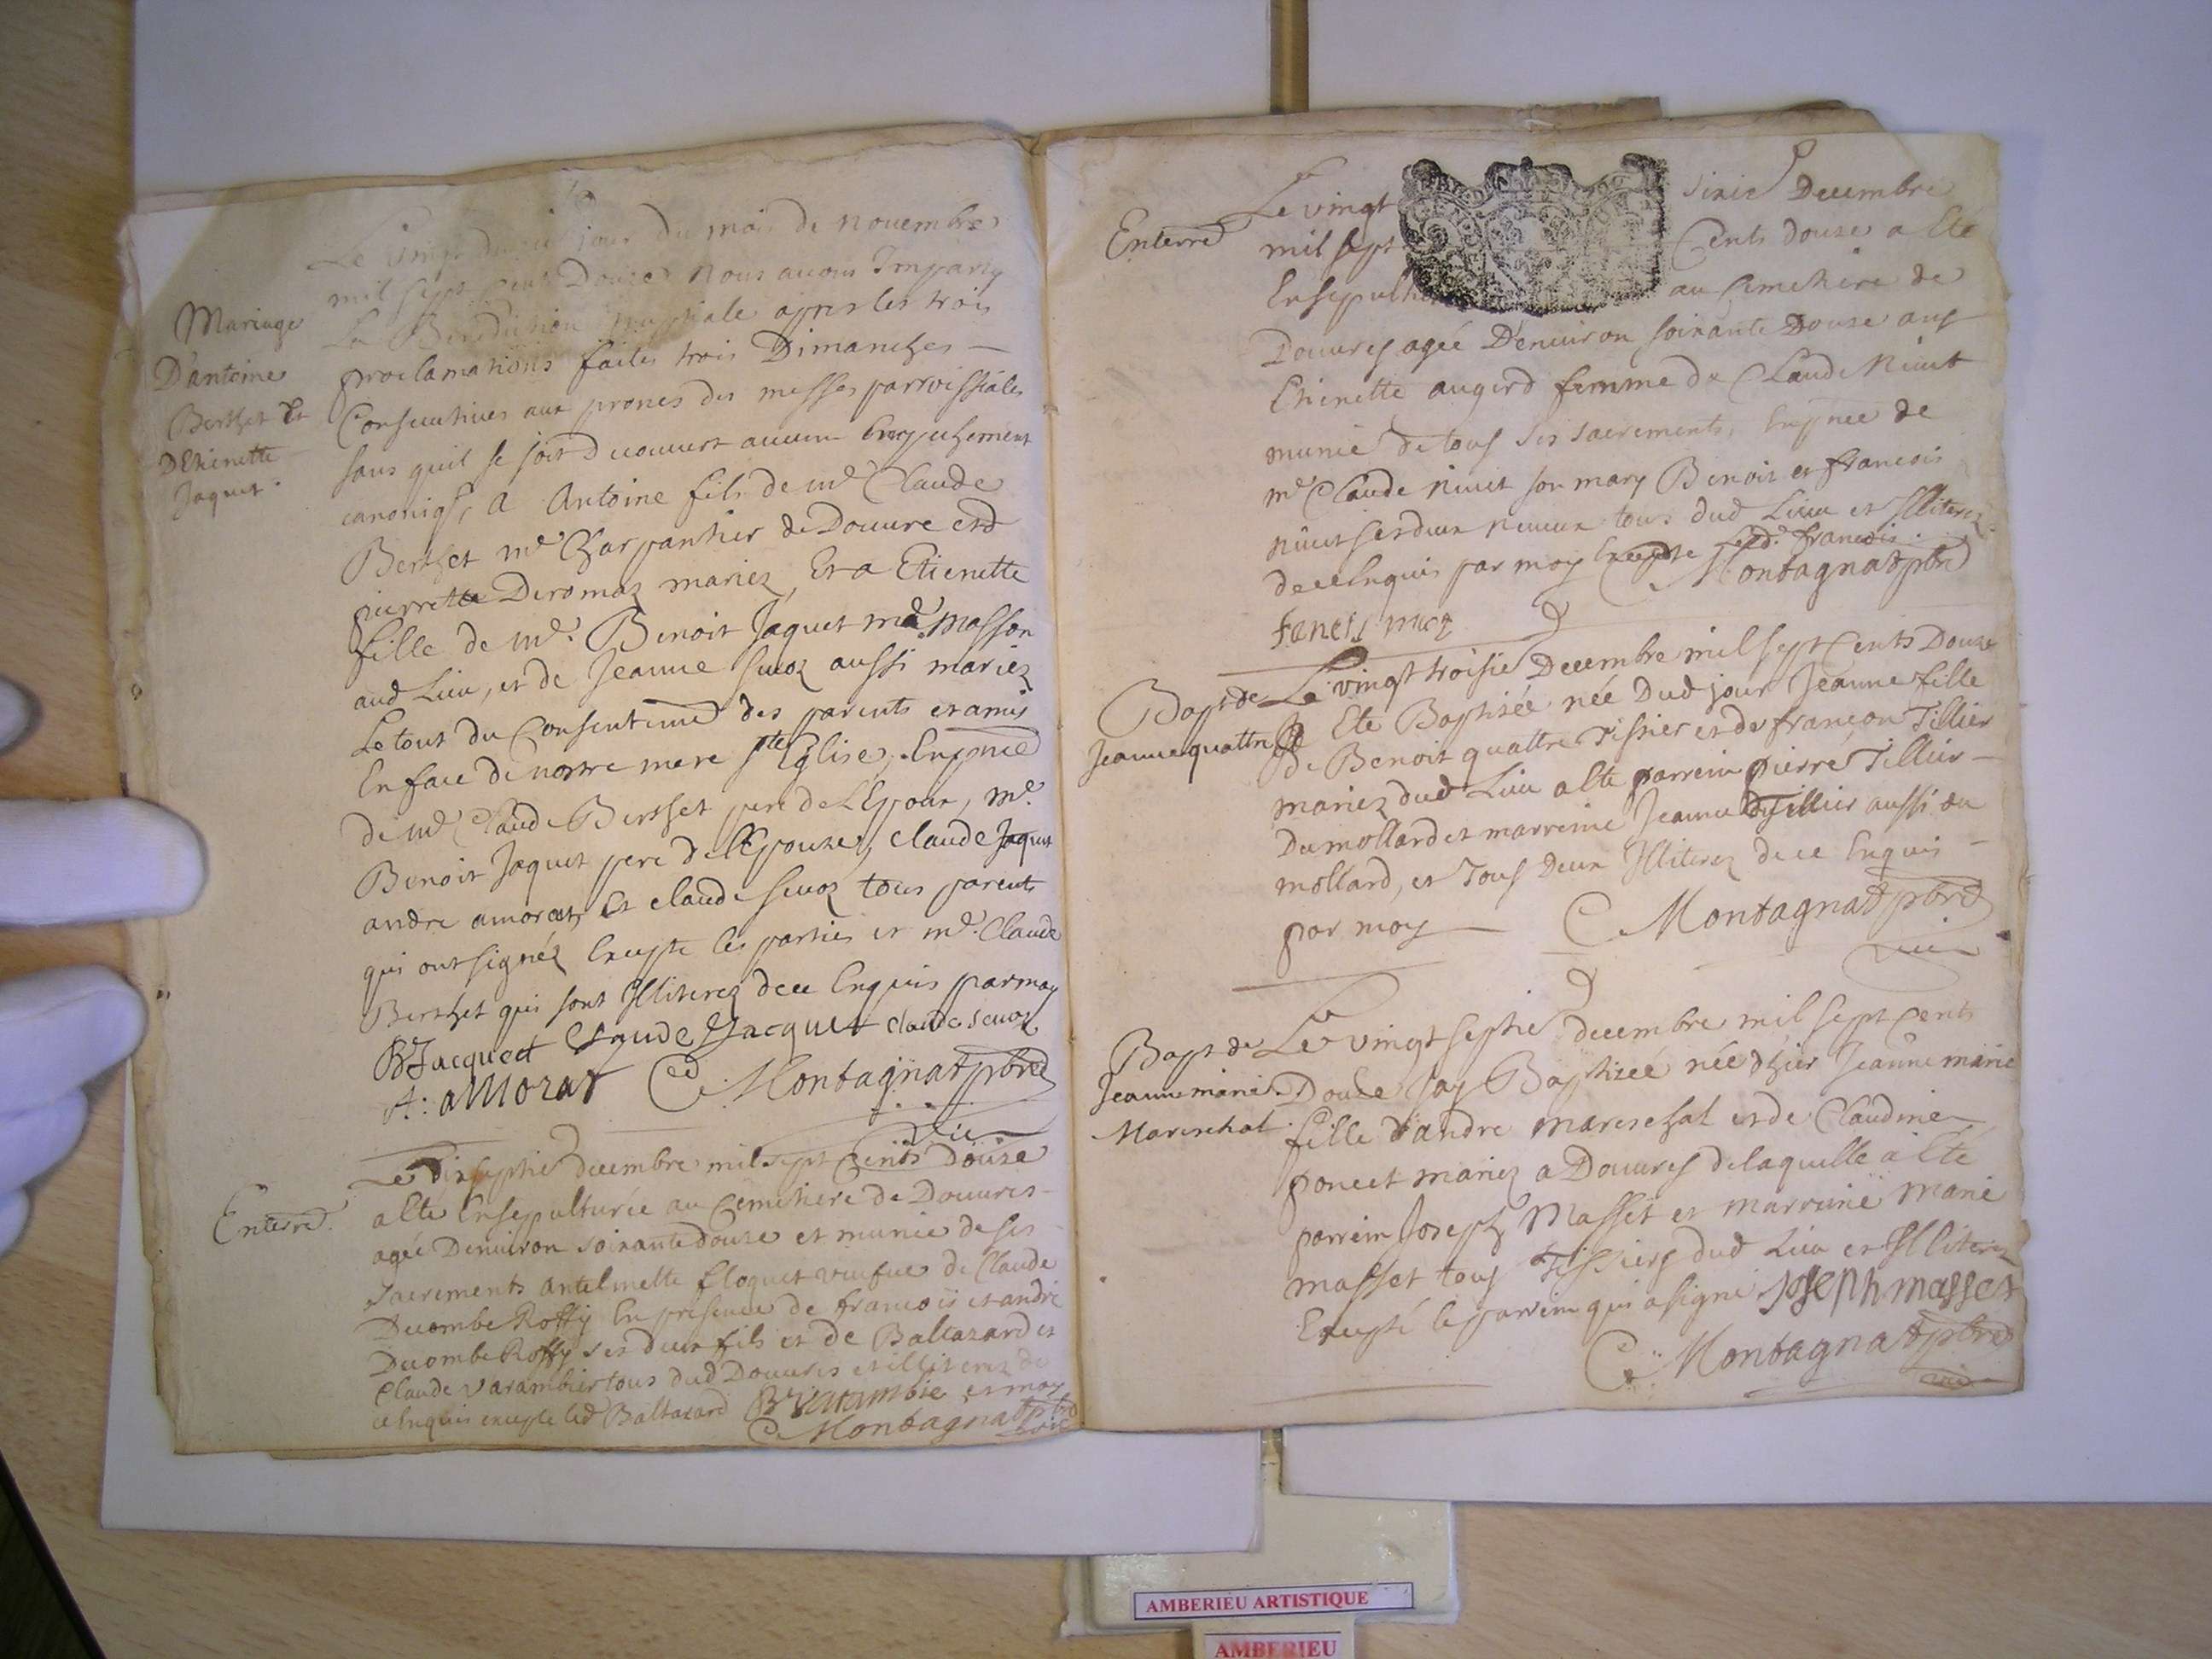 Mariage
D'antoine
Berthet Et
D'Etienette
Jaquet.
Le vingt jour du mois de novembre
mil sept cents Douze Nous avons Imparty
La Benediction nuptiale apres les trois
proclamations faites trois Dimanches
Consecutives aux prones des messes parroissiales
sans quil se soit decouvert aucun Empechement
canoniq, a Antoine fils de me Claude
Berthet me Charpantier de Douvre et d
pierrette Deromaz mariez, Et a Etienette
fille de me. Benoit Jaquet me masson
aud Lieu, et de Jeanne Suoz aussi mariez
Le tout du Consentemt des parents et amis
En face de nostre mere ste Eglise, En pnce
de me Claude Berthet pere de L'Epoux, me.
Benoit Jaquet pere de lEpouze, Claude Jaquet
andre amorat, Et claude Seuoz tous parents
qui ont signéz Excepte les parties et me. Claude
Berthet qui sont Illiterez de ce Enquis par moy
B Jacquet Claude Jacquet claude seuoz
A: aMorat C Montagnat pbre
vic
Enterre.
Le dix septie decembre mil sept Cents douze
a Eté Ensepulturée au Cemetiere de Douvres
agée Denviron soixante douze et munie de ses
sacrements antelmette Eloquet veufue de Claude
Decombe Roffy En presence de francois et andre
Decombe Roffy ses deux fils et de Baltazard et
Claude Varambier tous dud Douvres et illiterez de
ce Enquis excepte led Baltazard B Varambie et moy
C Montagnat pbre
vic
Enterre
Le vingt sixie Decembre
mil sept Cents douze a Eté
Ensepulture au Cemetiere de
Douvres agée D'environ soixante Douze ans
Etienette augerd femme de Claude Niuet
munie de tous ses sacrements, En pnce de
me Claude niuet son mary Benoit et francois
niuet ses deux neveux tous dud Lieu et Illiterez
de ce Enquis par moy Excepte led. francois.
C Montagnat pbre
Bapt de
Jeanne quattre
Le vingt troisie Decembre mil sept Cents Douze
a Eté Baptisée née Dud jour Jeanne fille
de Benoit quattre Tissier et de francon Tillier
mariez dud Lieu a Eté parrein pierre Tillier
Du mollard et marreine Jeanne Tillier aussi du
mollard, et Tous Deux Illiterez de ce Enquis
par moy C Montagnat pbre
vic
Bapt de
Jeanne marie
Mareschal.
Le vingt septie decembre mil sept Cents
Douze Jay Baptizeé née d'hier Jeanne marie
fille d'andre mareschal et de Claudine
poncet mariez a Douvres de laquelle a Eté
parrein Joseph Masset et marreine Marie
masset tous Tissiers dud Lieu et Illiterez
Excepté le parrein qui a signé Joseph masset
C Montagnat pbre
vic
AMBERIEU ARTISTIQUE
AMBERIEU